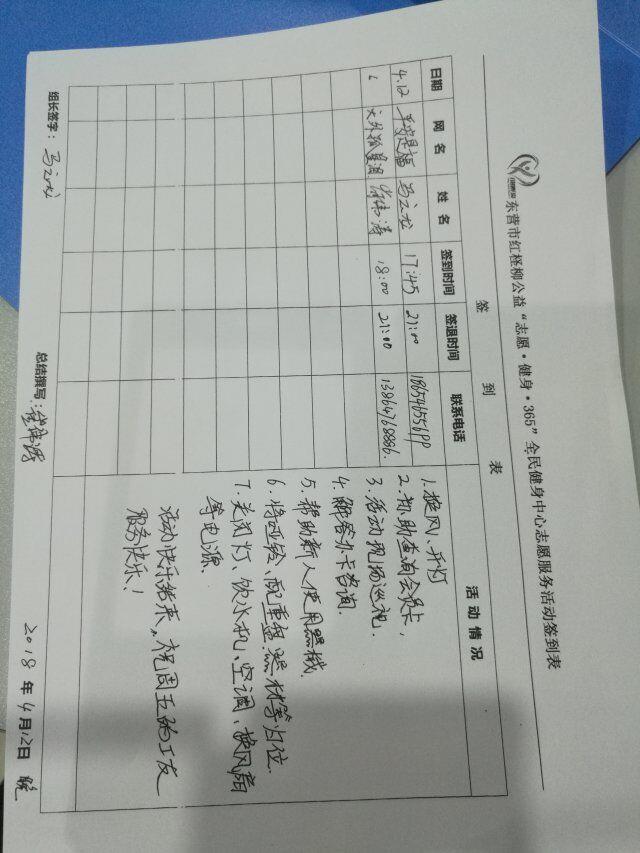 东营市红柽柳公益“志愿·健身·365”全民健身中心志愿服务活动签到表
签 到 表
日期 网 名 姓 名 签到时间 签退时间 联系电话 活 动 情 况
4.12 平安是福 马云龙 17:45 21:00
18:00 21:00 13864768886
1.换风、开灯
2.协助查询会员卡,
3.活动现场巡视.
4.解答办卡咨询.
5.帮助新人使用器械.
6.将亚铃、配重盘.器材等归位.
7.关闭灯、饮水机、空调、换风扇
等电源.
活动快乐结束,祝周五的工友
服务快乐!
组长签字:马云龙 总结撰写: 2018年4月12日 晚